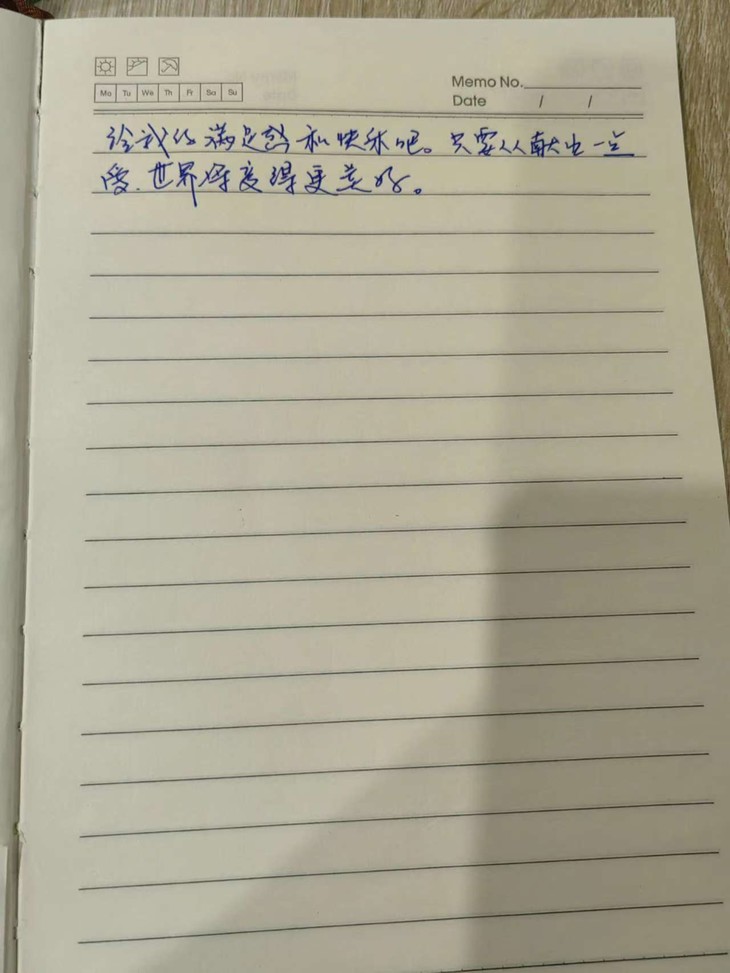 Memo No.
Mo Tu We Th Fr Sa Su
Date / /
给我的满足感和快乐吧。只要人人献出一点
爱.世界将变得更美好。